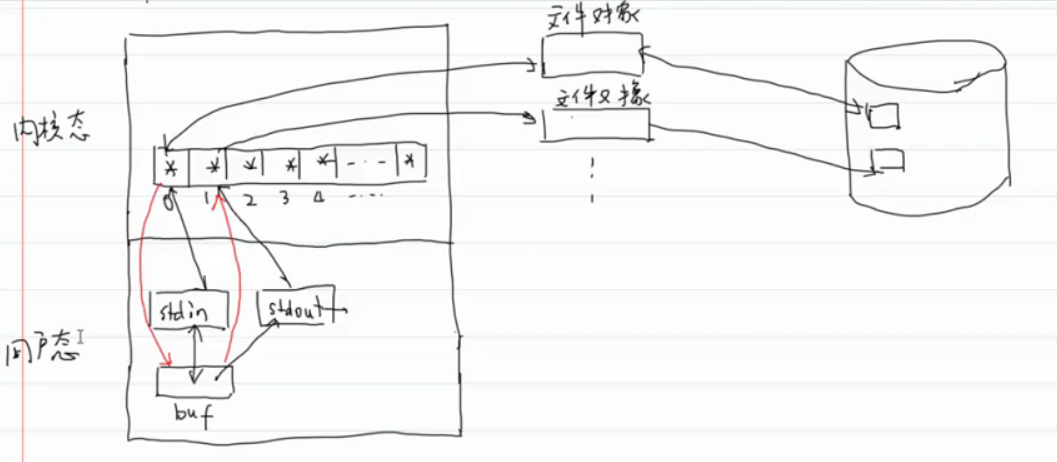 文件对象
文件对象
内核态
* * * * * --- *
0 1 2 3 4 ......
stdin stdout
用户态
buf